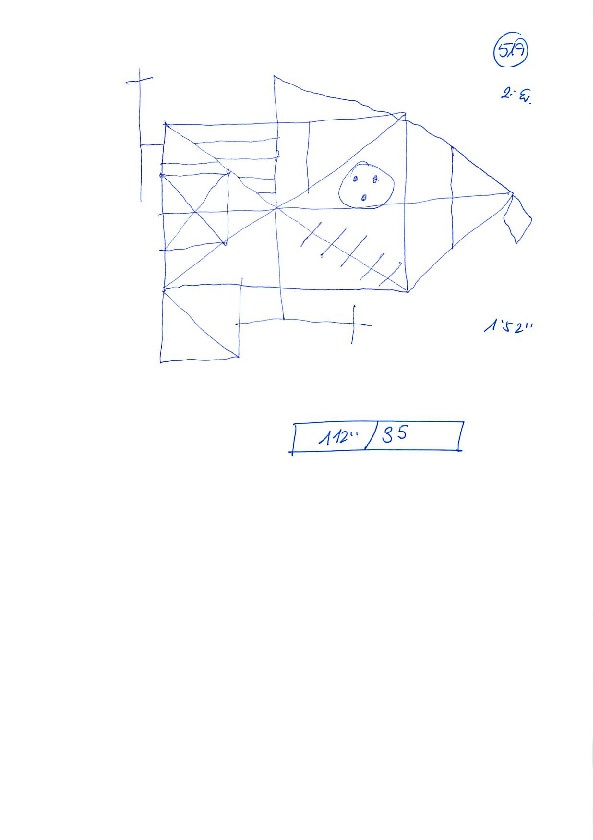 519
2. Ev.
1'52"
112" / 35